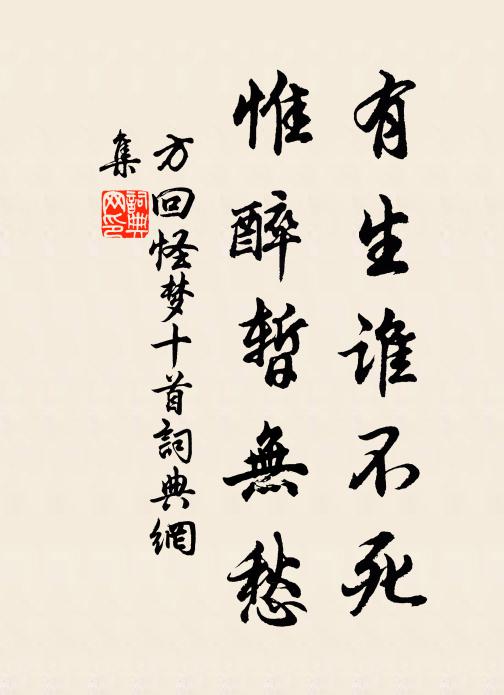 有生誰不死
惟醉暫無愁
方回怪梦十首詞典網
集
詞典
网印